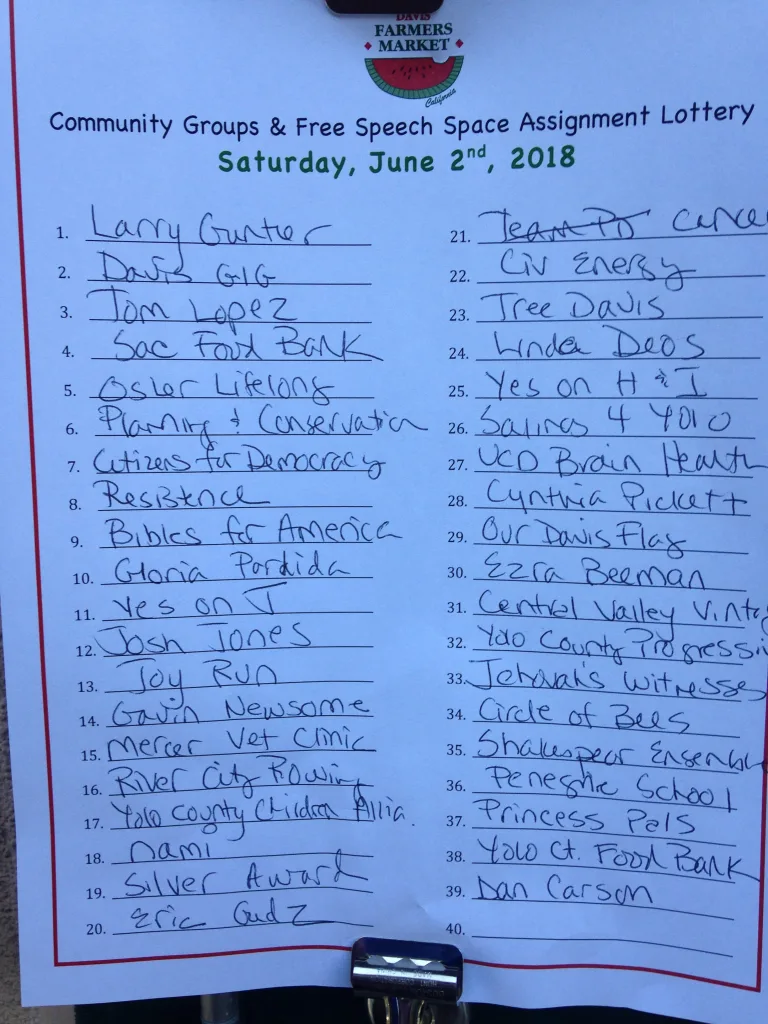 DAVIS
FARMERS
MARKET
California
Community Groups & Free Speech Space Assignment Lottery
Saturday, June 2nd, 2018
1. Larry Gunter
2. Davis GIG
3. Tom Lopez
4. Sac Food Bank
5. Osher Lifelong
6. Planning & Conservation
7. Citizens for Democracy
8. Resistence
9. Bibles for America
10. Gloria Partida
11. Yes on J
12. Josh Jones
13. Joy Run
14. Gavin Newsome
15. Mercer Vet Clinic
16. River City Rowing
17. Yolo County Children Allia.
18. nami
19. Silver Award
20. Eric Gudz
21. Team Cance
22. Civ Energy
23. Tree Davis
24. Linda Deos
25. Yes on H & I
26. Salinas 4 Yolo
27. UCD Brain Health
28. Cynthia Pickett
29. Our Davis Flag
30. Ezra Beeman
31. Central Valley Vinta
32. Yolo County Progressiv
33. Jehovah's Witnesses
34. Circle of Bees
35. Shakespear Ensembl
36. School
37. Princess Pals
38. Yolo Ct. Food Bank
39. Dan Carson
40.